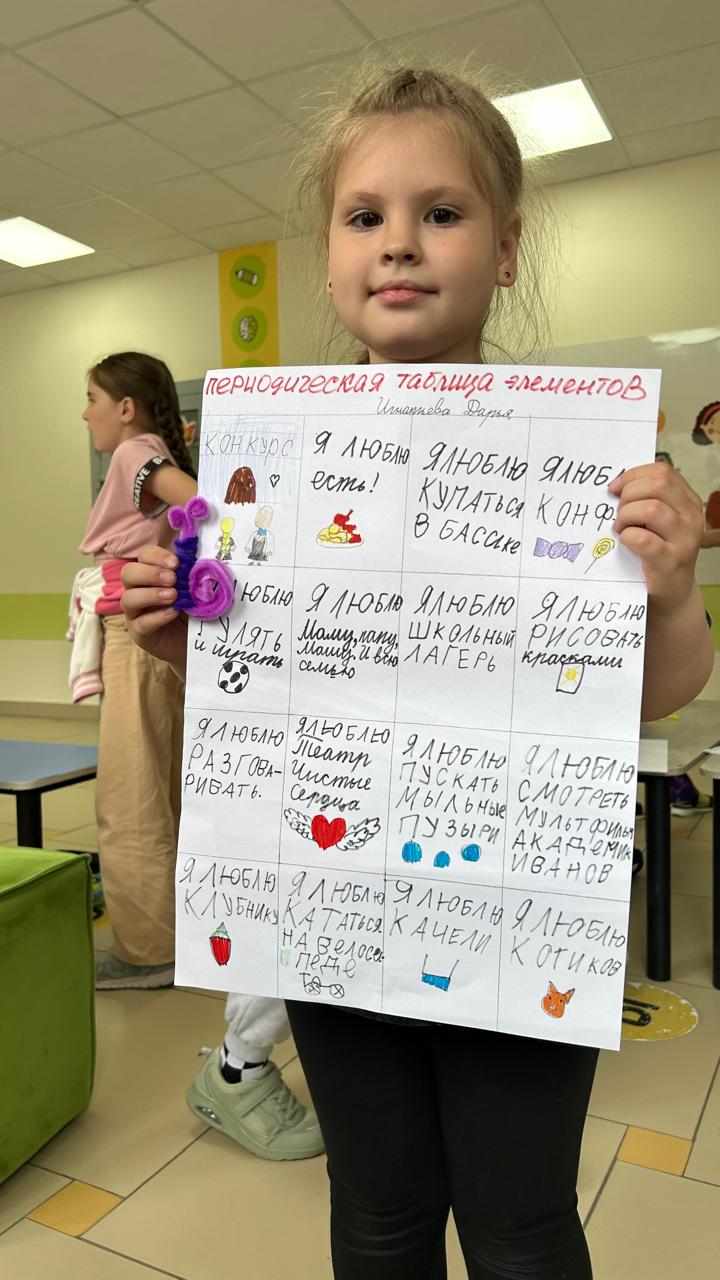 периодическая таблица элементов
Игнатьева Дарья
КОНКУРС
Я люблю
есть!
ЯЛЮБЛЮ
КУПАТЬСЯ
В БАССИЕ
ЯЛЮБЛ
КОНФ
ЛЮБЛЮ
УЛЯТЬ
и играть
Я ЛЮБЛЮ
Маму, папу,
Машу. И всю
семью
Я ЛЮБЛЮ
ШКОЛЬНЫЙ
ЛАГЕРЬ
Я ЛЮБЛЮ
РИСОВАТЬ
красками
Я ЛЮБЛЮ
РАЗГОВА-
РИВАТЬ.
ЯЛЮБЛЮ
Театр
Чистые
Сердца
Я ЛЮБЛЮ
ПУСКАТЬ
МЫЛЬНЫЕ
ПУЗЫРИ
ЯЛЮБЛЮ
СМОТРЕТЬ
МУЛЬТФИЛЬМ
АКАДЕМИК
ИВАНОВ
Я ЛЮБЛЮ
КЛУБНИКУ
Я ЛЮБЛЮ
КАТАТЬСЯ
НА велоси-
педе
Я ЛЮБЛЮ
КАЧЕЛИ
Я ЛЮБЛЮ
КОТИКОВ